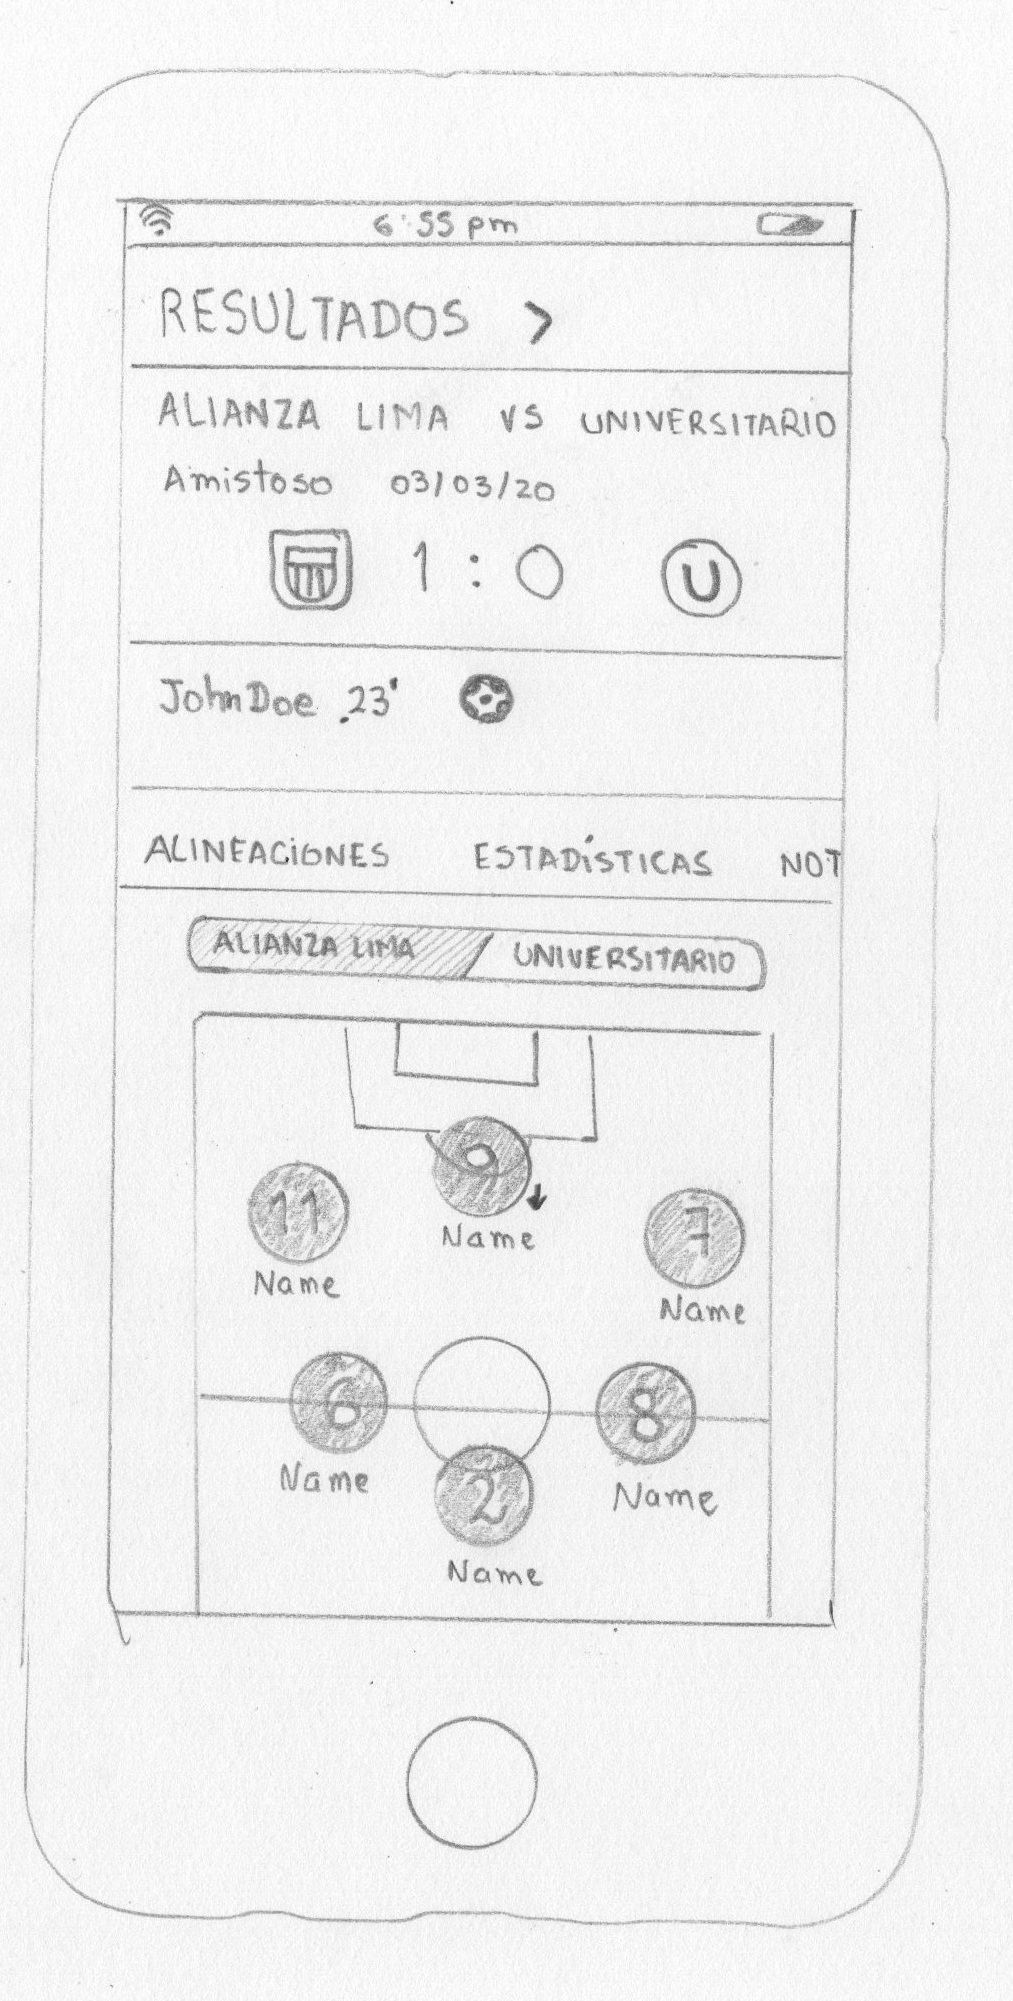 6:55 pm
RESULTADOS >
ALIANZA LIMA VS UNIVERSITARIO
Amistoso 03/03/20
1 : 0 U
John Doe 23'
ALINEACIONES ESTADÍSTICAS NOT
ALIANZA LIMA UNIVERSITARIO
9
Name
11
Name
7
Name
6
Name
8
Name
2
Name